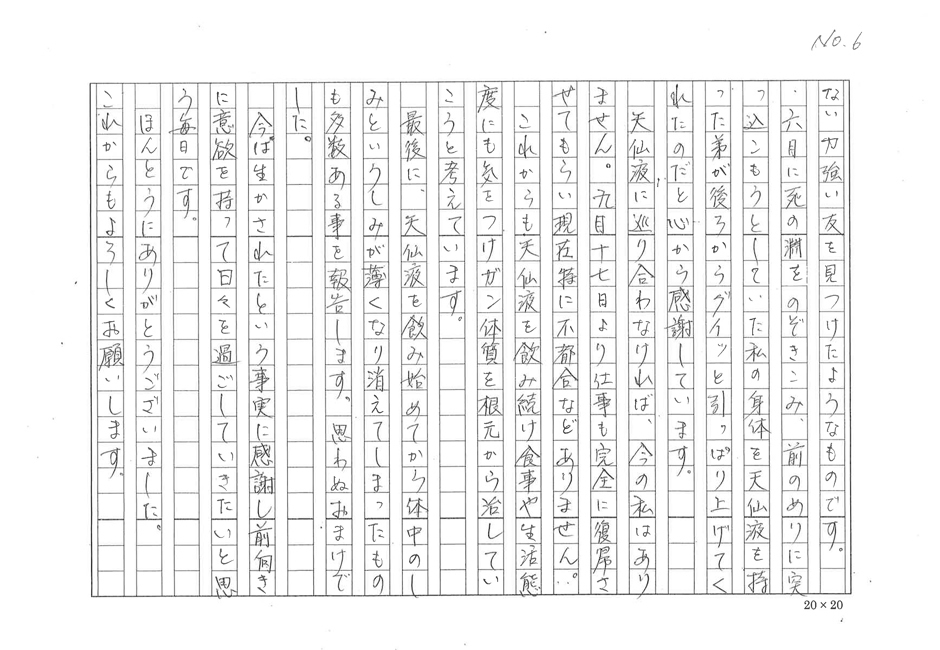 No.6
ない力強い友を見つけたようなものです。
・六月に死の淵をのぞきこみ、前のめりに突
っ込こもうとしていた私の身体を天仙液を持
った弟が後ろからグイッと引っぱり上げてく
れたのだと心から感謝しています。
天仙液に巡り合わなければ、今の私はあり
ません。九月十七日より仕事も完全に復帰さ
せてもらい現在特に不都合などありません…。
これからも天仙液を飲み続け食事や生活態
度にも気をつけガン体質を根元から治してい
こうと考えています。
最後に、天仙液を飲み始めてから体中のし
みというしみが薄くなり消えてしまったもの
も多数ある事を報告します。思わぬおまけで
した。
今は生かされたという事実に感謝し前向き
に意欲を持って日々を過ごしていきたいと思
う毎日です。
ほんとうにありがとうございました。
これからもよろしくお願いします。
20×20